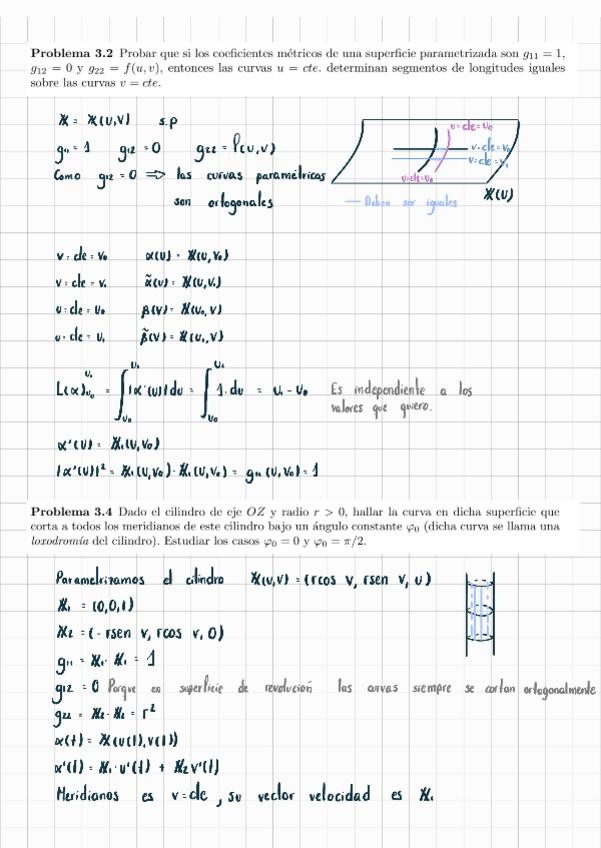 Problema 3.2 Probar que si los coeficientes métricos de una superficie parametrizada son g₁₁ = 1,
g₁₂ = 0 y g₂₂ = f(u, v), entonces las curvas u = cte. determinan segmentos de longitudes iguales
sobre las curvas v = cte.
𝕏 = 𝕏(u,v) s.p
g₁₁ = 1 g₁₂ = 0 g₂₂ = f(u,v)
Como g₁₂ = 0 ⟹ las curvas paramétricas
son ortogonales
u=cte=u₀
v=cte=v₀
v=cte=v₁
u=cte=u₀
— Deben ser iguales
𝕏(U)
v = cte = v₀ α(u) = 𝕏(u,v₀)
v = cte = v₁ α̃(u) = 𝕏(u,v₁)
u = cte = u₀ β(v) = 𝕏(u₀,v)
u = cte = u₁ β̃(v) = 𝕏(u₁,v)
L(α)ᵤ₀ᵘ¹ = ∫ᵤ₀ᵘ¹ |α'(u)| du = ∫ᵤ₀ᵘ¹ 1·du = u₁ - u₀ Es independiente a los
valores que quiero.
α'(u) = 𝕏₁(u,v₀)
|α'(u)|² = 𝕏₁(u,v₀)·𝕏₁(u,v₀) = g₁₁(u,v₀) = 1
Problema 3.4 Dado el cilindro de eje OZ y radio r > 0, hallar la curva en dicha superficie que
corta a todos los meridianos de este cilindro bajo un ángulo constante φ₀ (dicha curva se llama una
loxodromía del cilindro). Estudiar los casos φ₀ = 0 y φ₀ = π/2.
Parametrizamos el cilindro 𝕏(u,v) = (rcos v, rsen v, u)
𝕏₁ = (0,0,1)
𝕏₂ = (- rsen v, rcos v, 0)
g₁₁ = 𝕏₁·𝕏₁ = 1
g₁₂ = 0 Porque en superficie de revolución las curvas siempre se cortan ortogonalmente
g₂₂ = 𝕏₂·𝕏₂ = r²
α(t) = 𝕏(u(t),v(t))
α'(t) = 𝕏₁·u'(t) + 𝕏₂v'(t)
Meridianos es v=cte, su vector velocidad es 𝕏₁